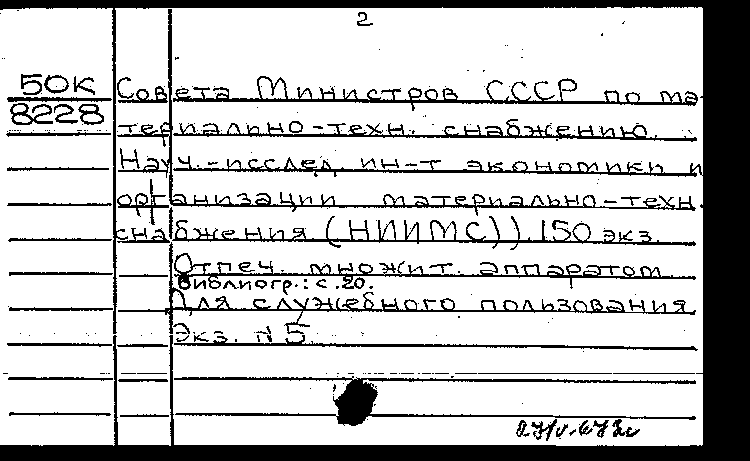 2
50К Совета Министров СССР по ма-
8228 териально-техн. снабжению.
Науч.-исслед. ин-т экономики и
организации материально-техн.
снабжения (НИИМС)). 150 экз.
Отпеч. множит. аппаратом
Библиогр.: с. 20.
Для служебного пользования
Экз. N 5